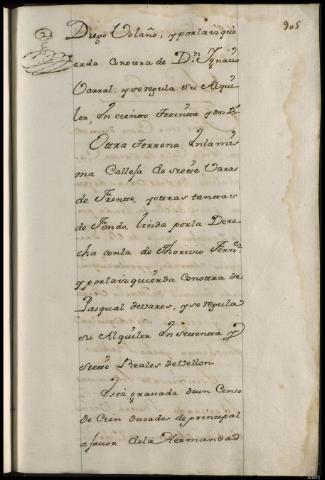 905
2
Diego Volaño, y por la izqui
erda con otra de Dn. Ygnacio
Varral, y se regula su Alqui
ler, en ciento Treinta y dos Rs.
Ottra Terrena en la mis
ma Calleja de siette Varas
de Frente, y ottras tanttas
de Fondo, linda por la Dere
cha con la de Thorivio Fernz.
y por la izquierda con otra de
Pasqual de vares, y se regula
su Alquiler en settenta y
siette Reales de vellon
Está gravada de un Censo
de Cien ducados de principal
a favor de la Hermandad